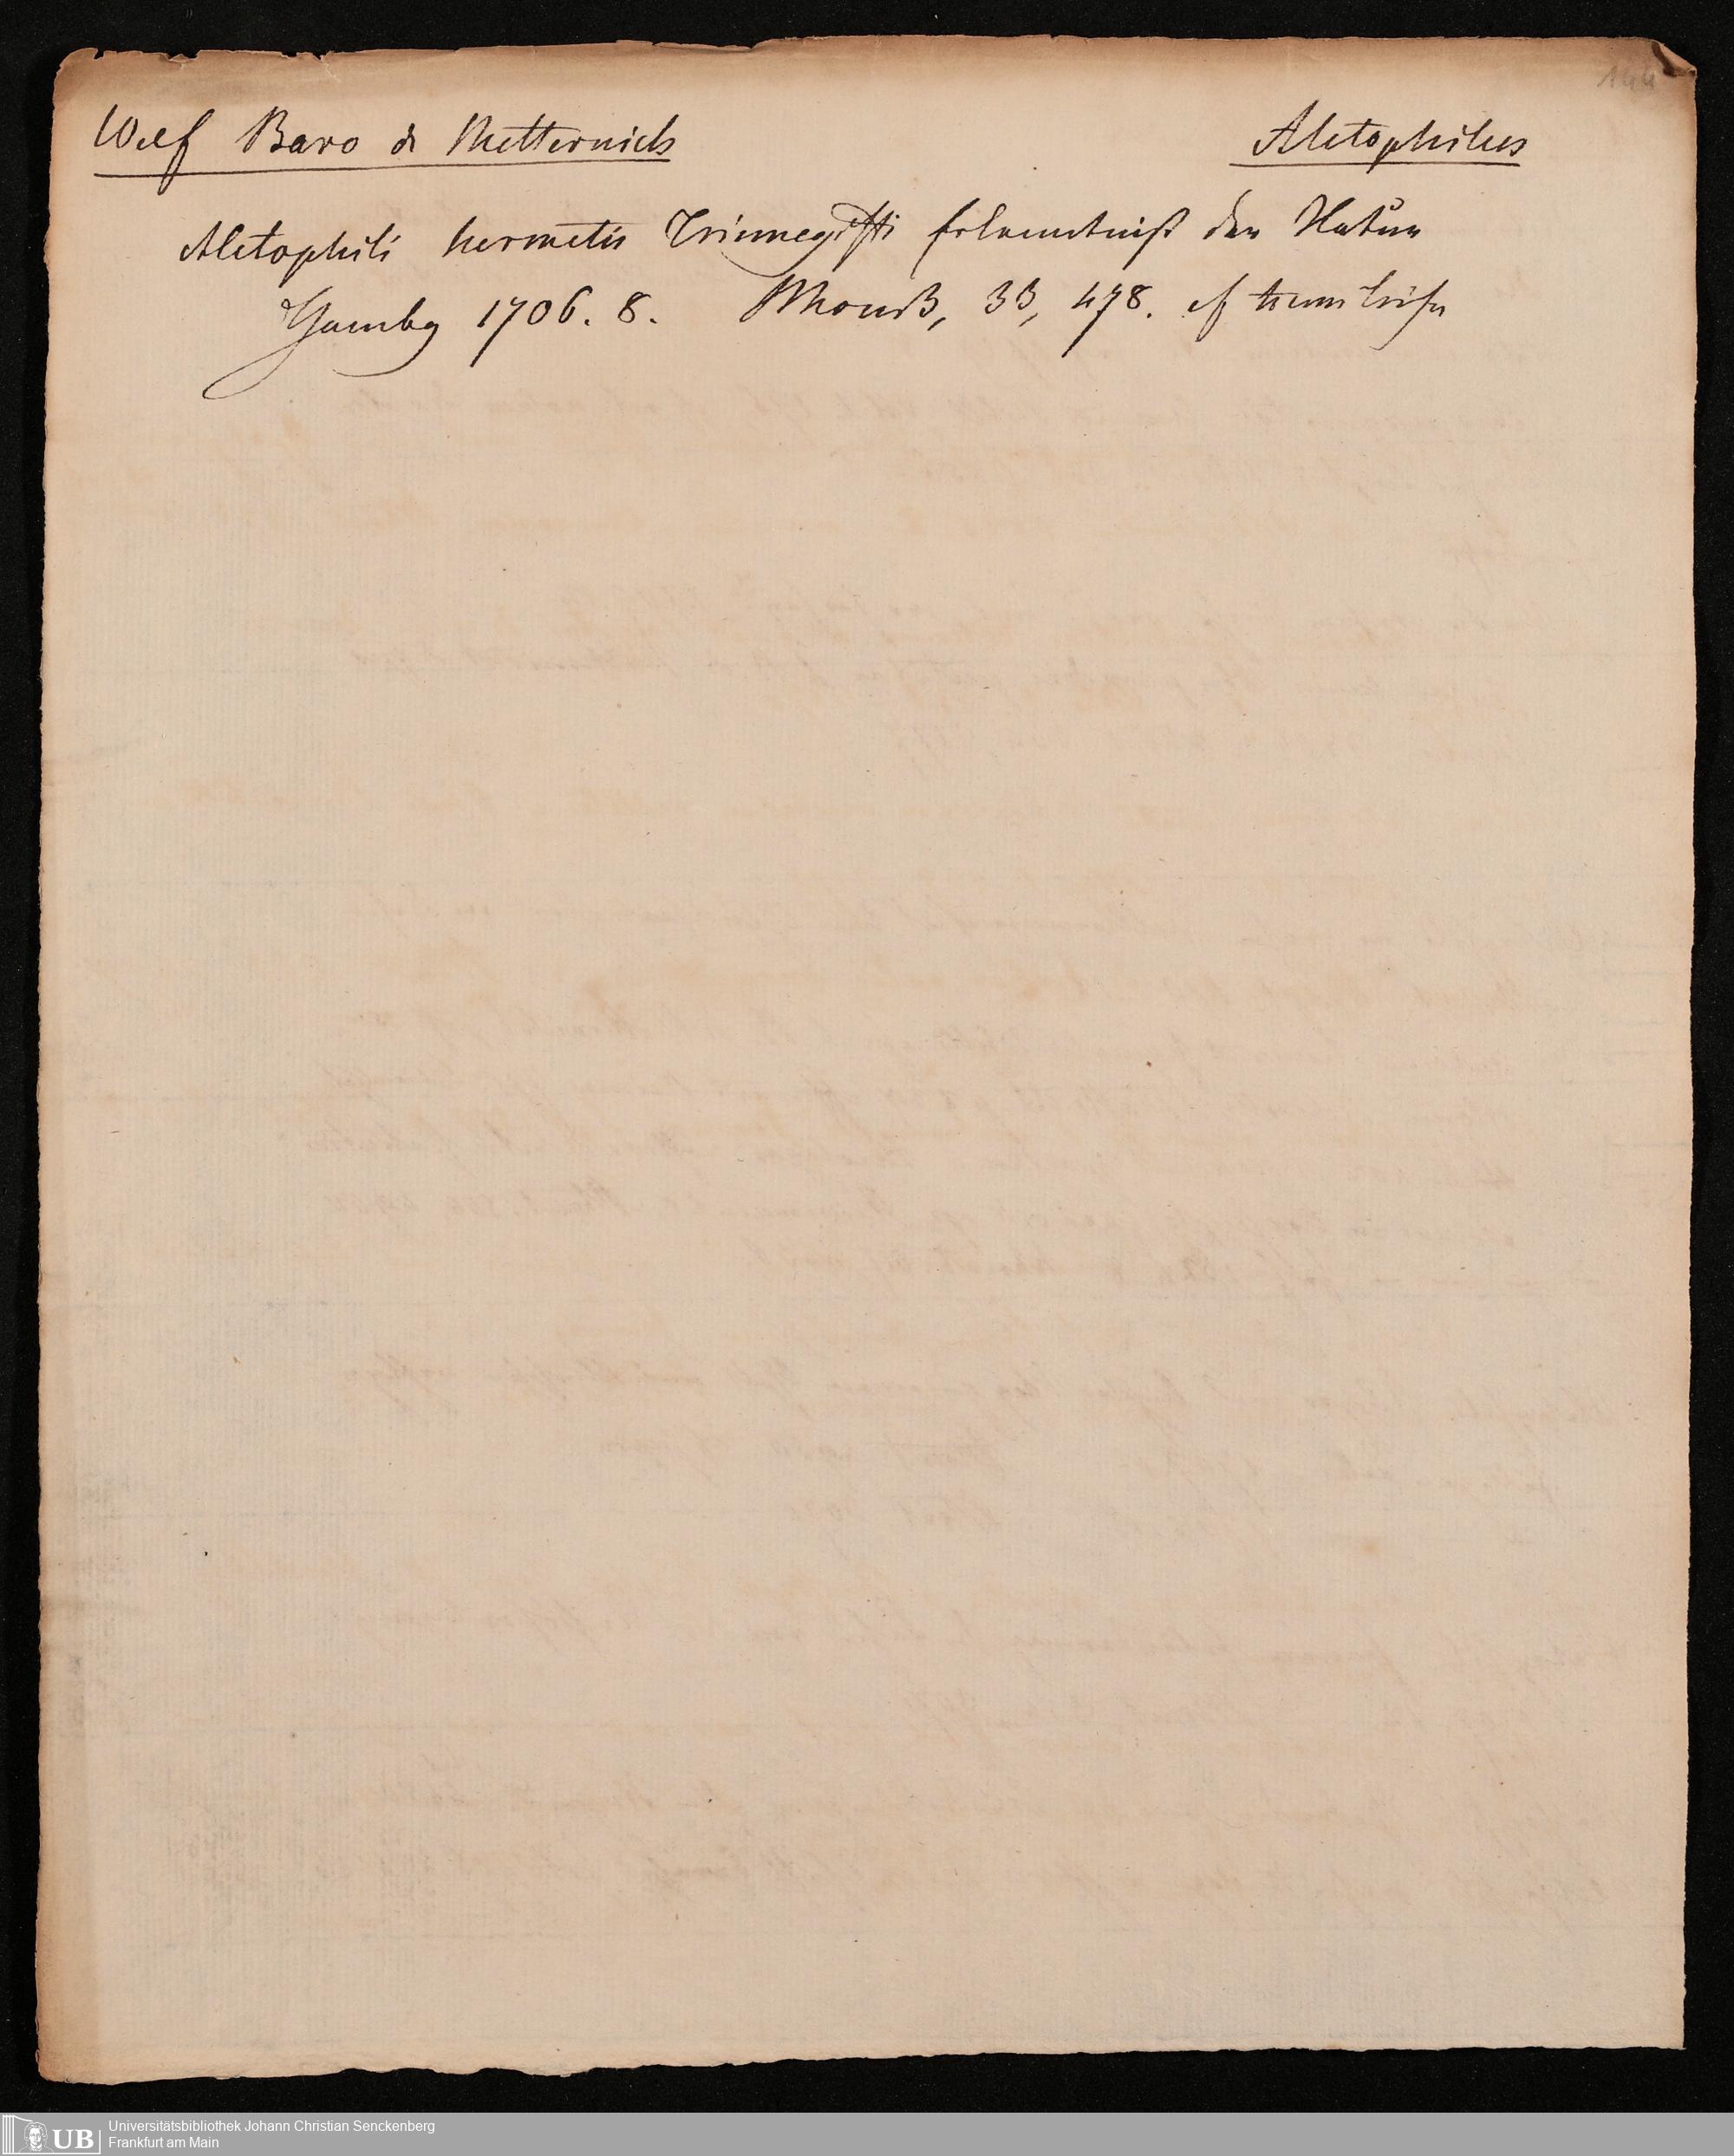 144
Wolf Baro de Metternich Aletophilus
Aletophili hermetis Trismegisti Erkenntniß der Natur
Hamбg 1706. 8. 33, 478. cf
UB Universitätsbibliothek Johann Christian Senckenberg
Frankfurt am Main